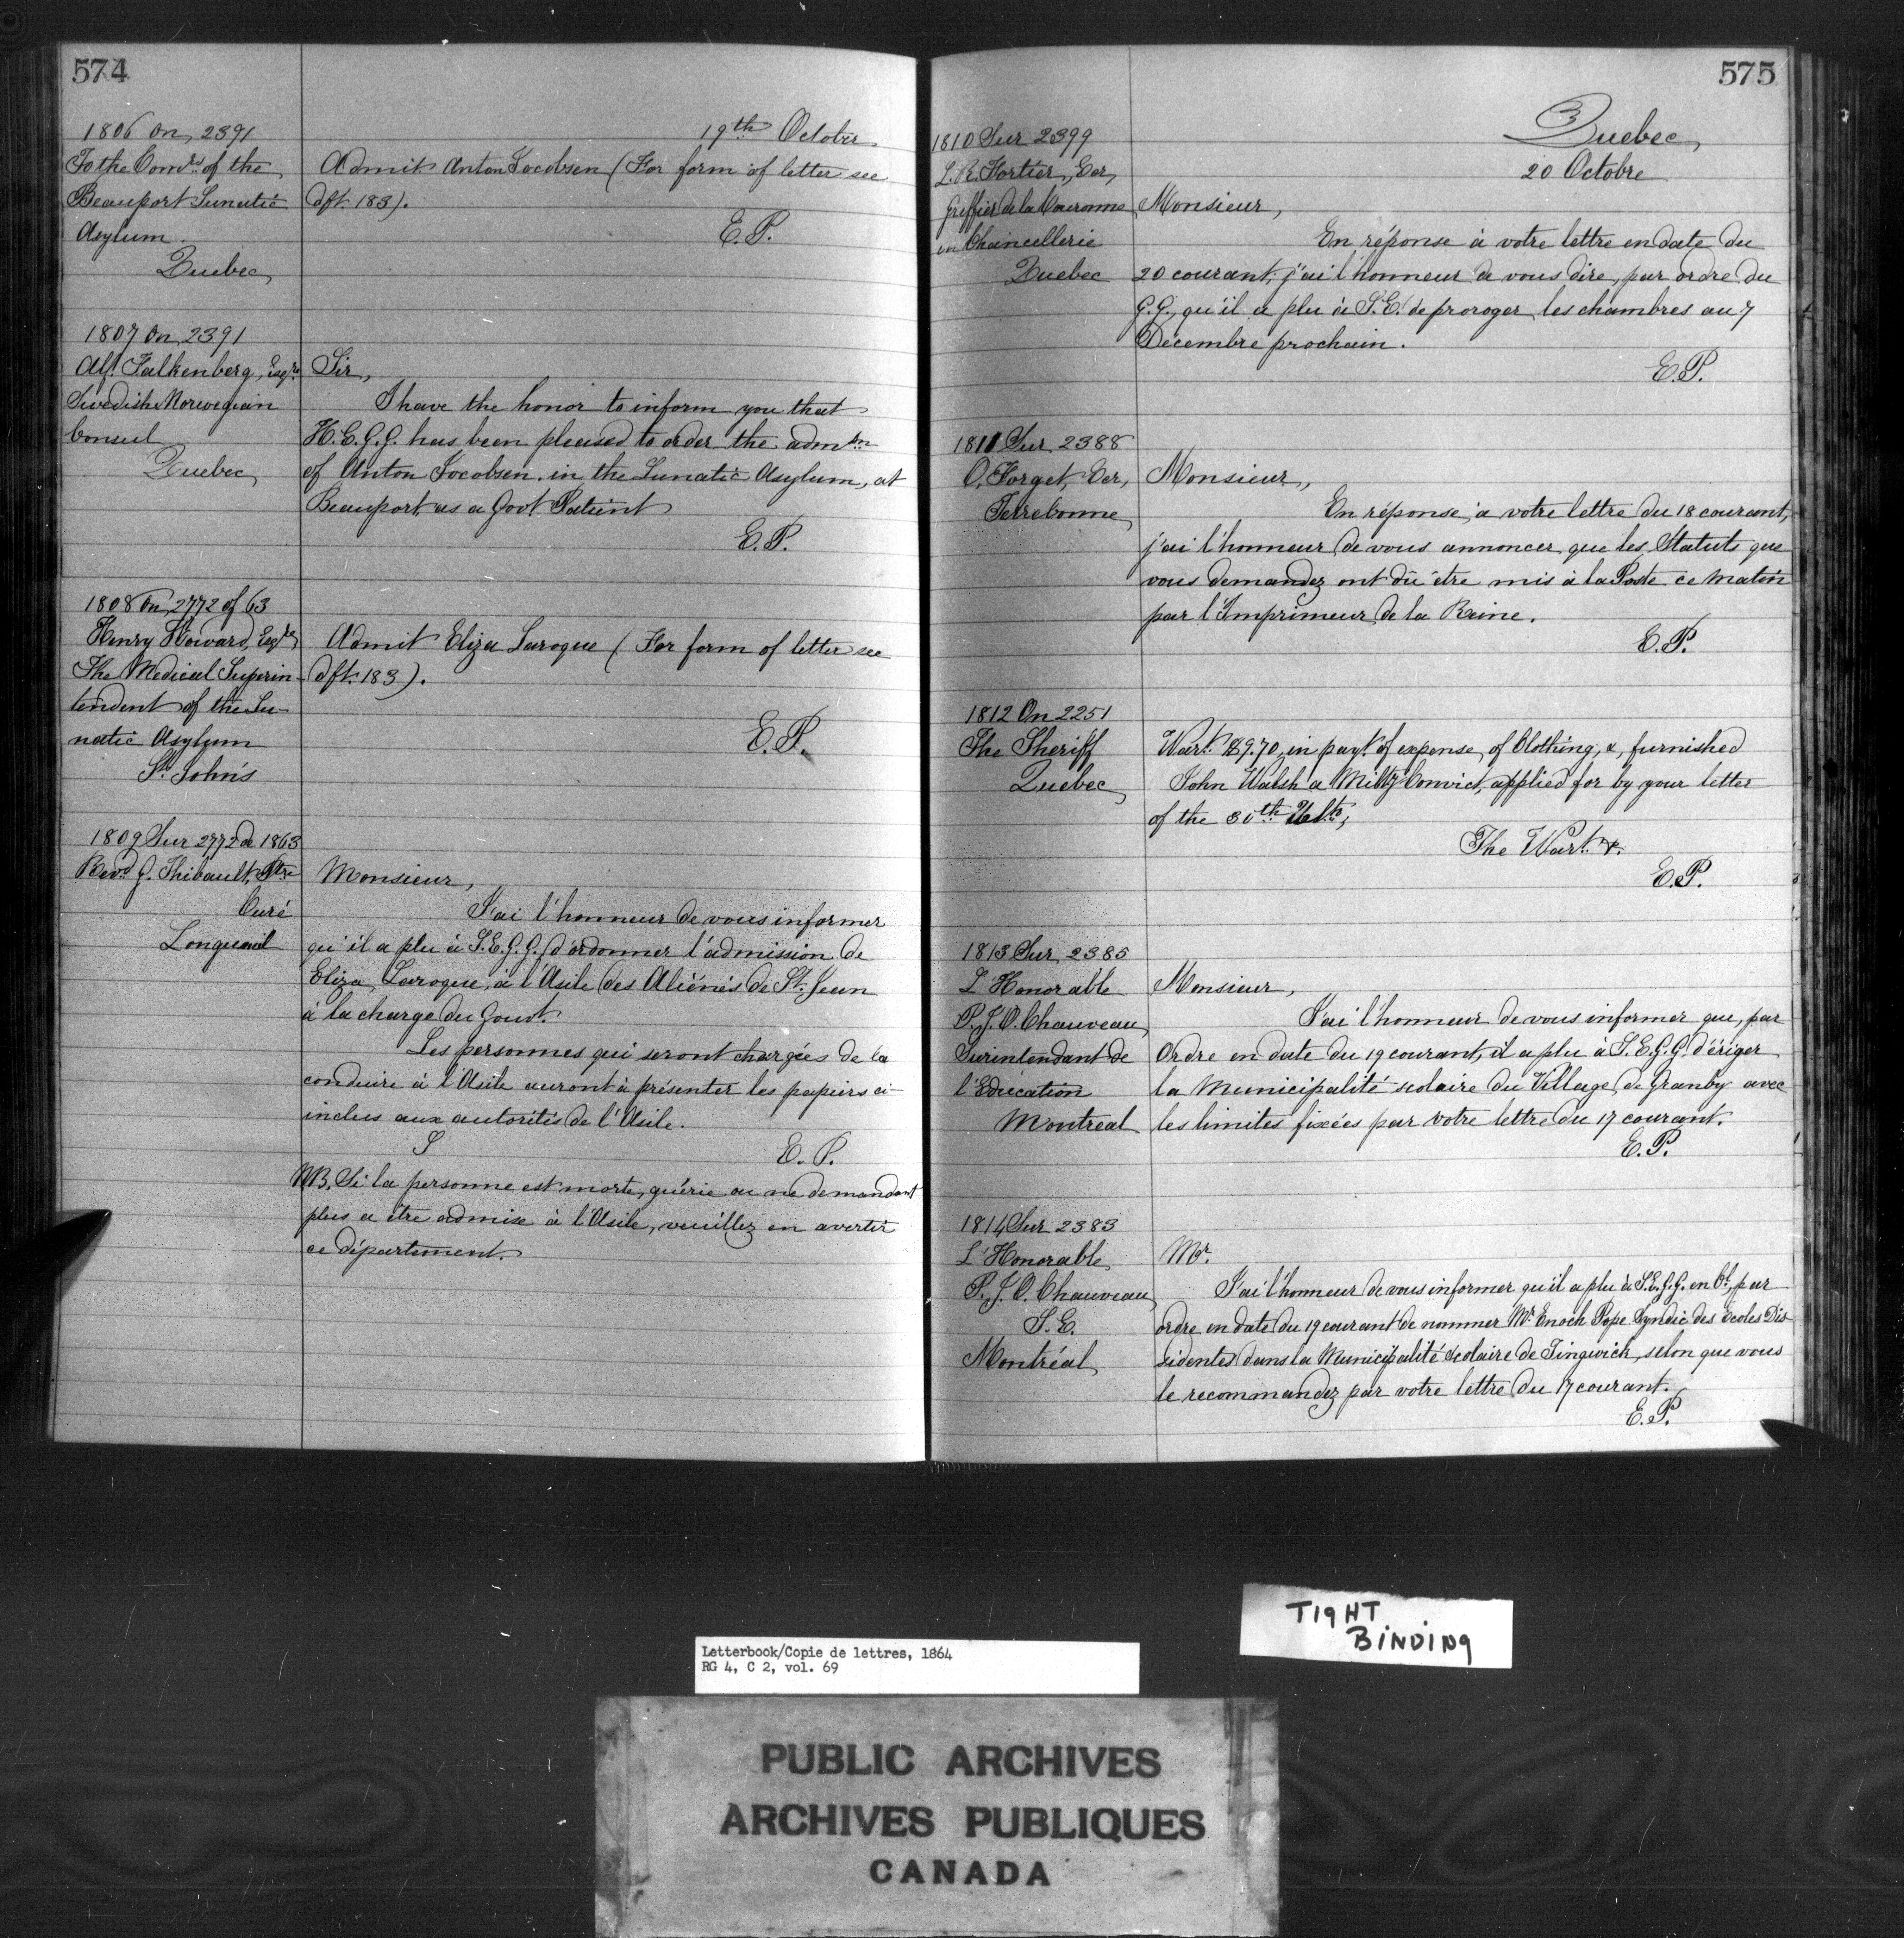 574
19th October
1806 On 2391
To the Comrs of the
Beauport Lunatic
Asylum
Quebec
Admit Anton Jacobsen (For form of letter see
dft. 183).
E.P.
1807 On 2391
Alf. Falkenberg, Esqre
Swedish Norwegian
Consul
Quebec
Sir,
I have the honor to inform you that
H.E.G.G. has been pleased to order the admon
of Anton Jacobsen in the Lunatic Asylum, at
Beauport as a Govt Patient
E.P.
1808 On 2772 of 63
Henry Howard, Esqre
The Medical Superin-
tendent of the Lu-
natic Asylum
St. John's
Admit Eliza Laroque (For form of letter see
dft. 183).
E.P.
1809 Sur 2772 de 1863
Revd G. Thibault, Ptre
Curé
Longueuil
Monsieur,
J'ai l'honneur de vous informer
qu'il a plu à S.E.G.G. d'ordonner l'admission de
Eliza Laroque, à l'Asile des Aliénés de St. Jean
à la charge du Gouvt.
Les personnes qui seront chargées de la
conduire à l'Asile auront à présenter les papiers ci-
inclus aux autorités de l'Asile.
S
E.P.
NB. Si la personne est morte, guérie ou ne demandant
plus a être admise à l'Asile, veuillez en avertir
ce département.
575
Quebec,
20 Octobre
1810 Sur 2399
L.R. Fortier, Ecr,
Greffier de la Couronne
en Chancellerie
Quebec
Monsieur,
En réponse à votre lettre en date du
20 courant, j'ai l'honneur de vous dire, par ordre du
G.G., qu'il a plu à S.E. de proroger les chambres au 7
Décembre prochain.
E.P.
1811 Sur 2388
O. Forget, Ecr,
Terrebonne,
Monsieur,
En réponse, a votre lettre du 18 courant,
j'ai l'honneur de vous annoncer que les Statuts que
vous demandez ont dû être mis à la Poste ce matin
par l'Imprimeur de la Reine.
E.P.
1812 On 2251
The Sheriff
Quebec,
Wart. $9.70, in payt. of expense of Clothing, &, furnished
John Walsh a Milty Convict, applied for by your letter
of the 30th Ulto,
The Wart. &.
E.P.
1813 Sur 2385
L'Honorable
P.J.O. Chauveau,
Surintendant de
l'Education
Montreal
Monsieur,
J'ai l'honneur de vous informer que, par
Ordre en date du 19 courant, il a plu à S.E.G.G. d'ériger
la Municipalité scolaire du Village de Granby avec
les limites fixées par votre lettre du 17 courant.
E.P.
1814 Sur 2383
L'Honorable
P.J.O. Chauveau,
S.E.
Montréal,
Mr.
J'ai l'honneur de vous informer qu'il a plu à S.E.G.G. en Cl, par
ordre en date du 19 courant de nommer Mr. Enoch Pope Syndic des Ecoles Dis-
sidentes dans la Municipalité Scolaire de Tingwick, selon que vous
le recommandez par votre lettre du 17 courant.
E.P.
TIGHT
BINDING
Letterbook/Copie de lettres, 1864
RG 4, C 2, vol. 69
PUBLIC ARCHIVES
ARCHIVES PUBLIQUES
CANADA